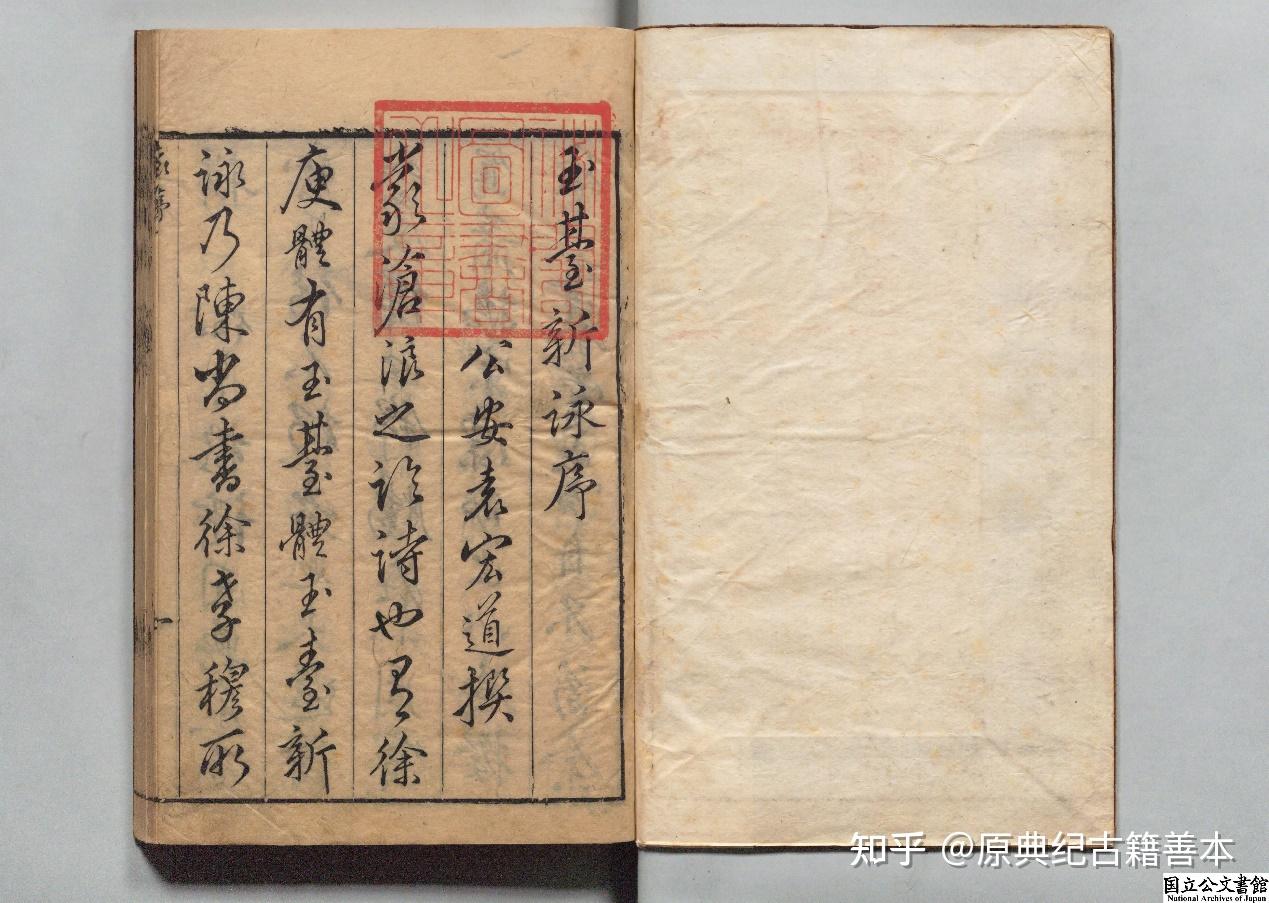 玉䑓新詠序
公安袁宏道撰
嚴滄浪之論詩也有徐
庾體有玉䑓體玉臺新
詠乃陳尚書徐孝穆所
知乎 @原典纪古籍善本
国立公文書館
National Archives of Japan